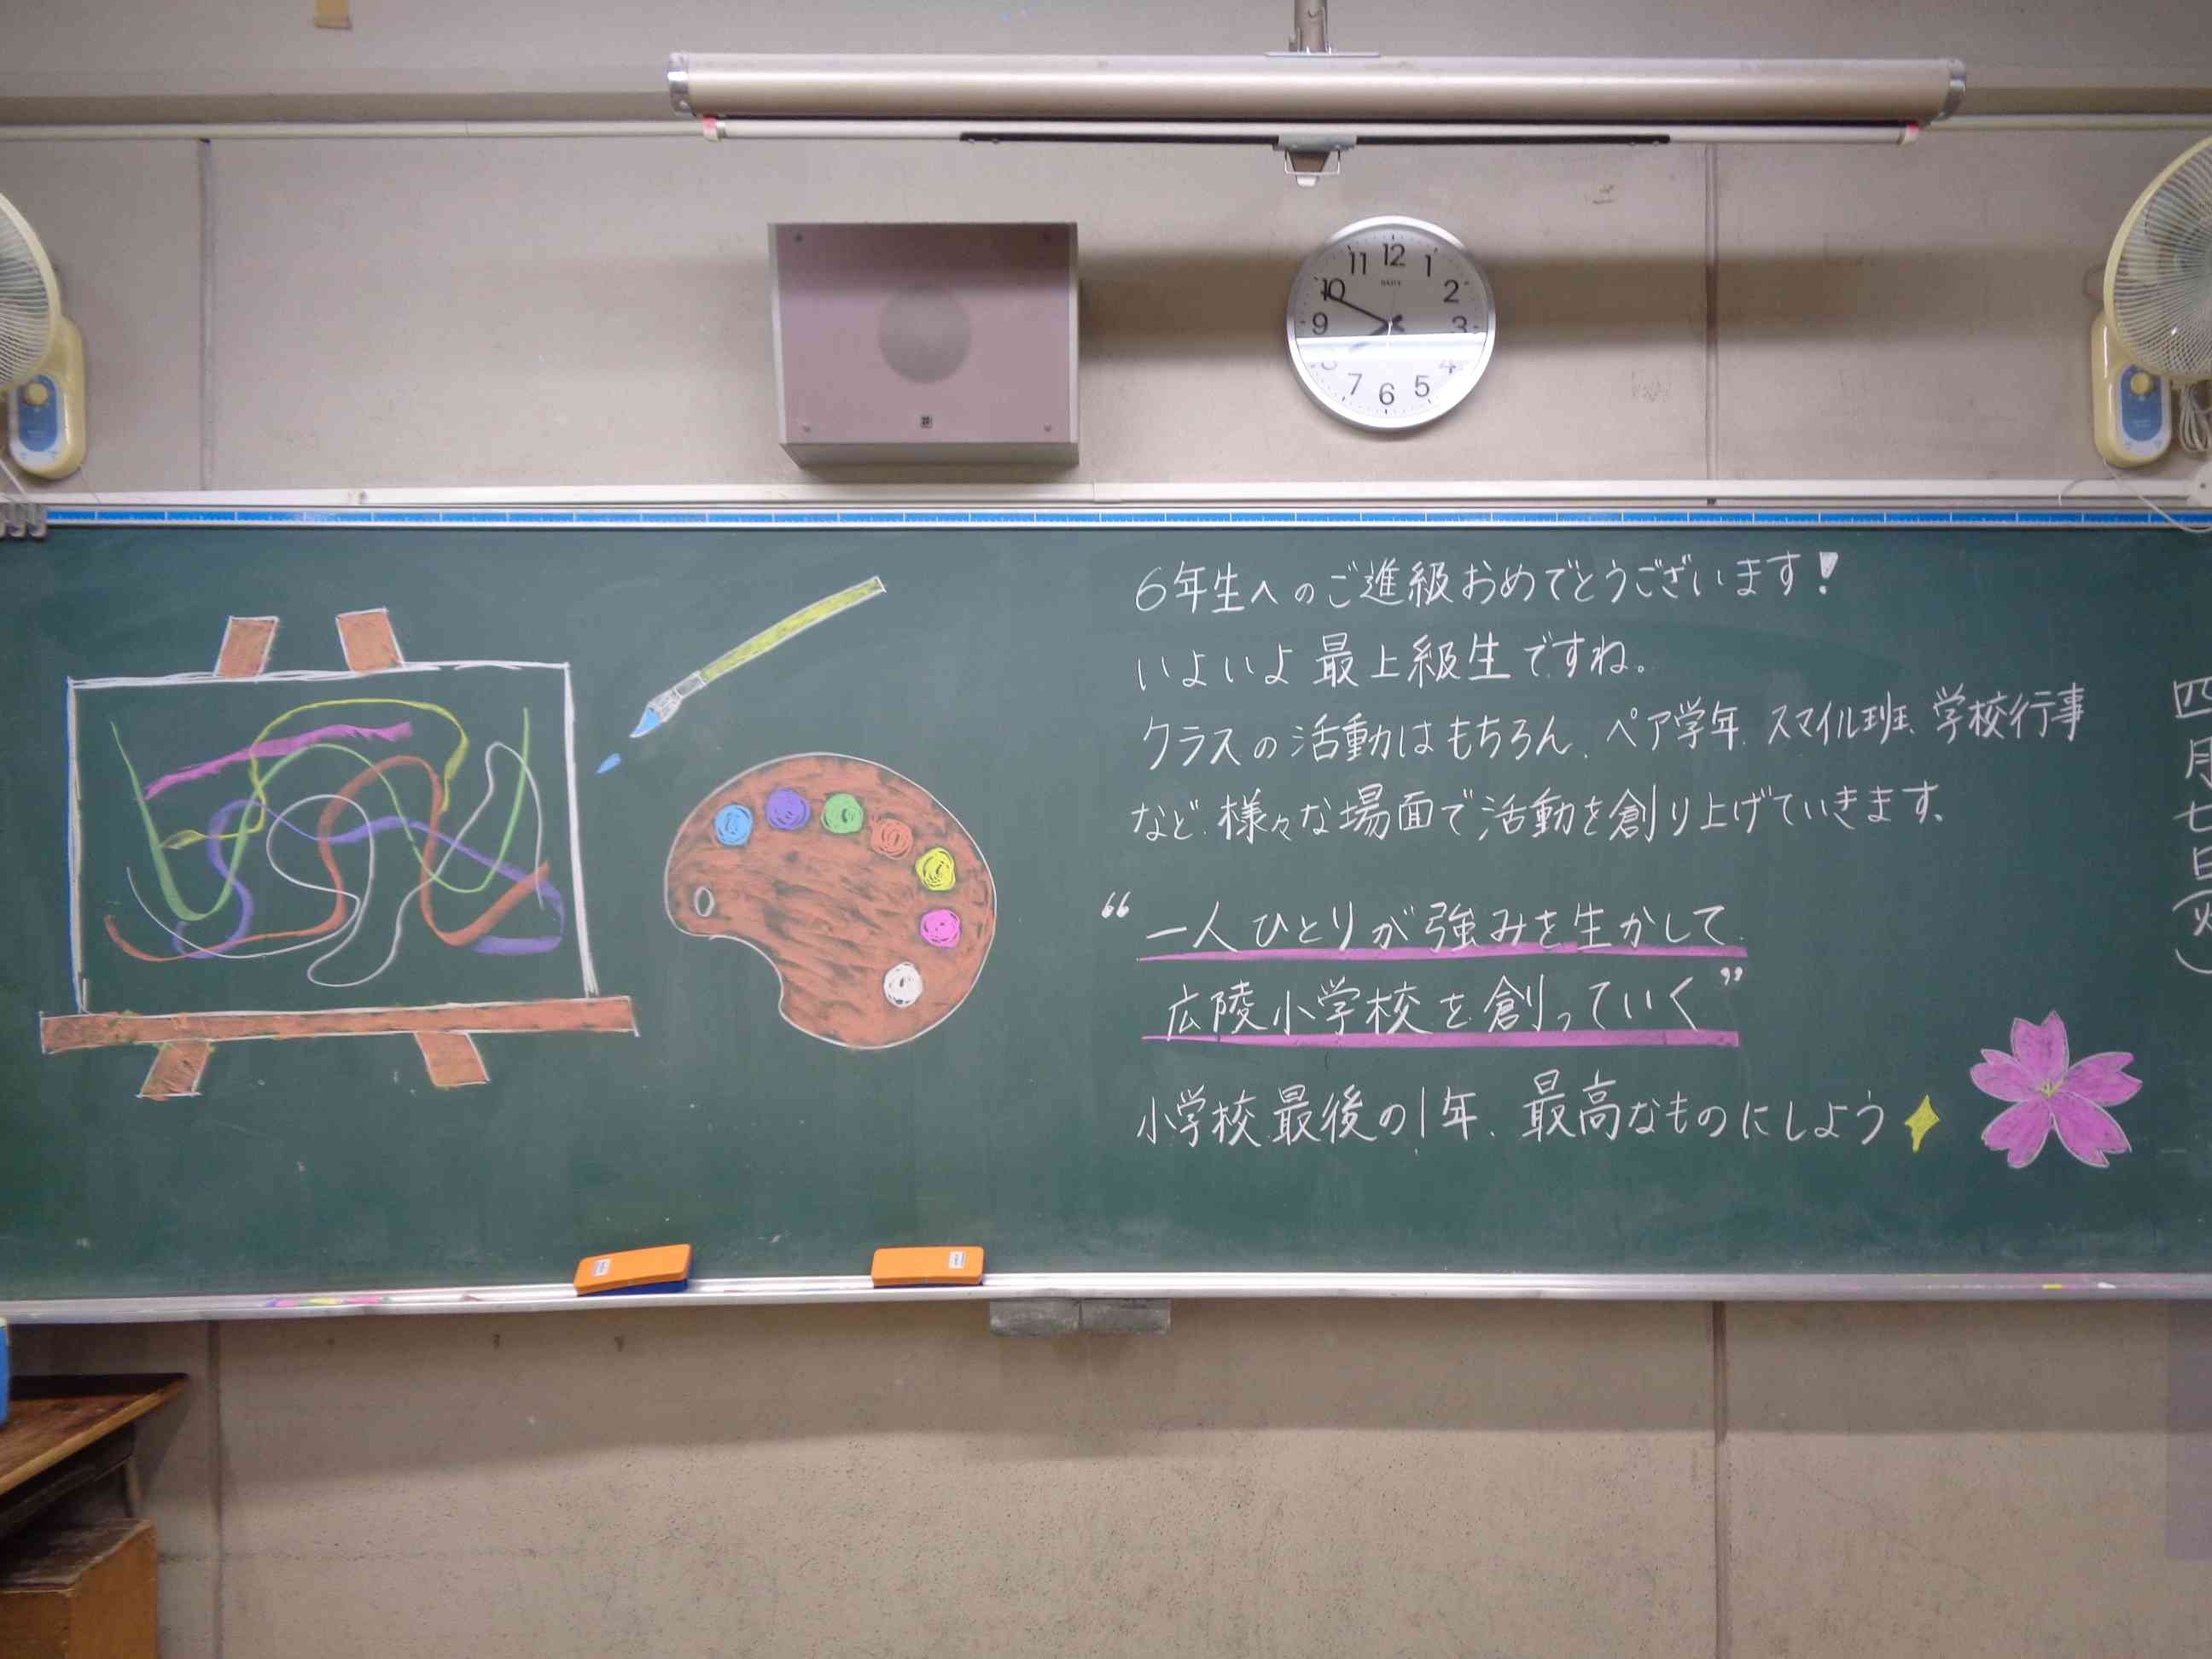 6年生へのご進級おめでとうございます!
いよいよ最上級生ですね。
クラスの活動はもちろん、ペア学年、スマイル班、学校行事
など、様々な場面で活動を創り上げていきます。
“一人ひとりが強みを生かして
広陵小学校を創っていく”
小学校最後の1年、最高なものにしよう
四月七日(火)
12
1
2
3
4
5
6
7
8
9
10
11